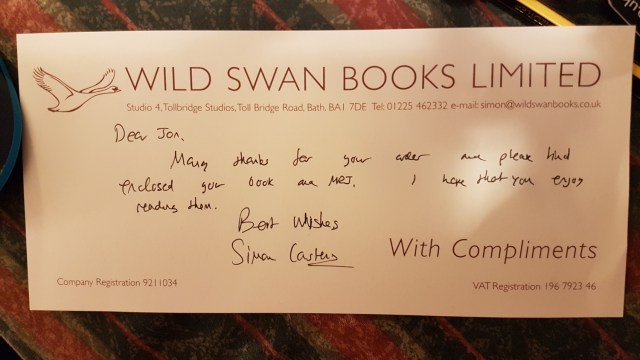 WILD SWAN BOOKS LIMITED
Studio 4, Tollbridge Studios, Toll Bridge Road, Bath. BA1 7DE Tel: 01225 462332 e-mail: simon@wildswanbooks.co.uk
Dear Jon,
Many thanks for your order and please find
enclosed your book and MRJ. I hope that you enjoy
reading them.
Best Wishes
Simon Castens
With Compliments
Company Registration 9211034
VAT Registration 196 7923 46